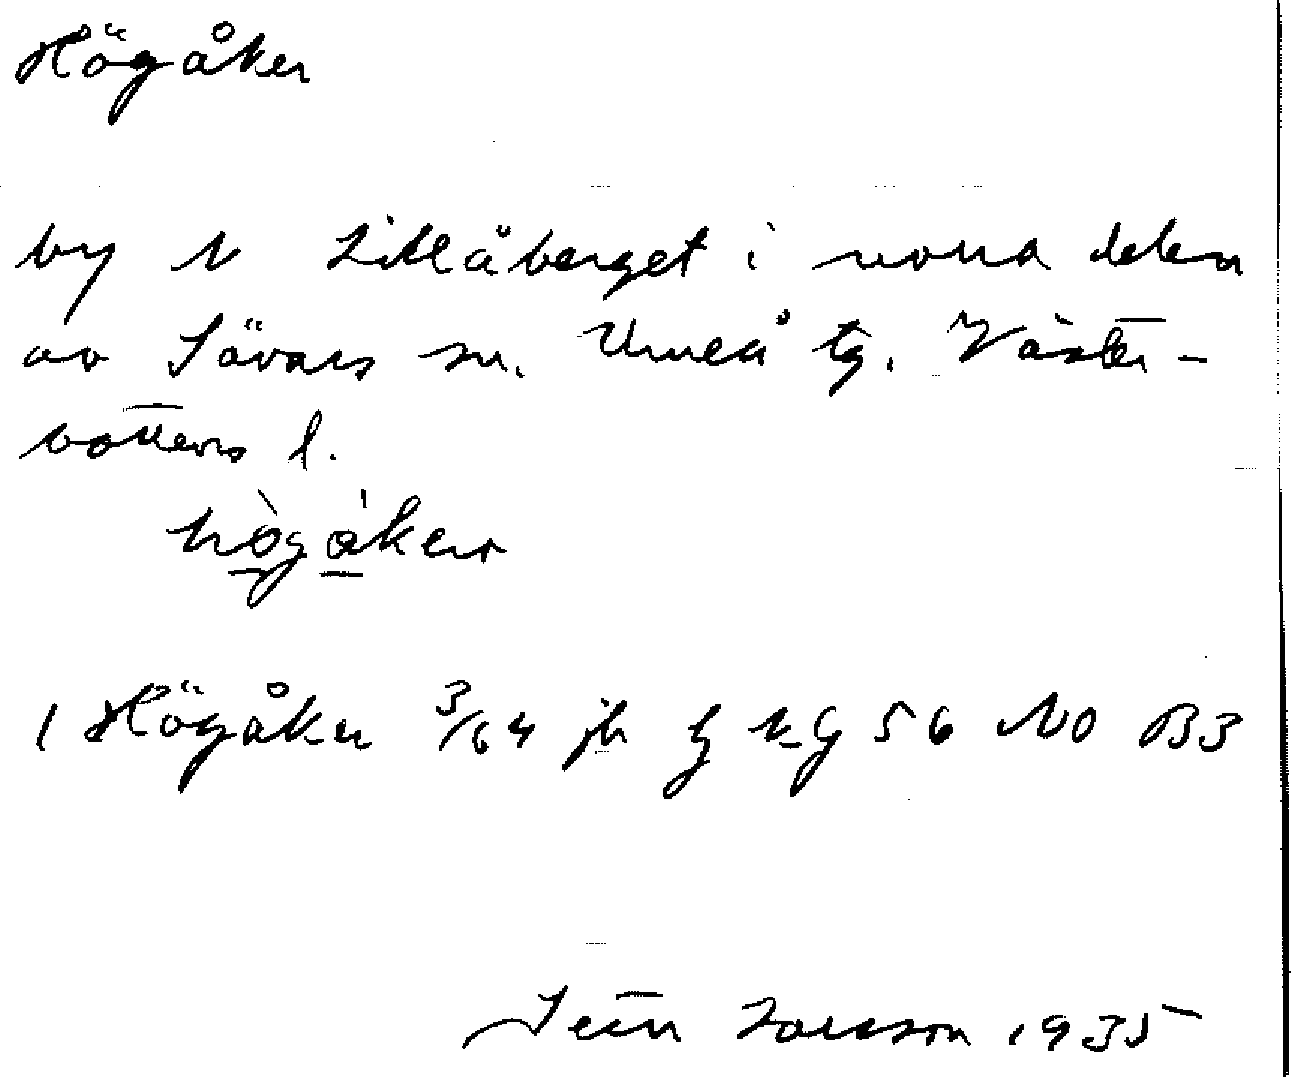 Högåker
by N Lillåberget i norra delen
av Sävars sn. Umeå tg. Väster-
bottens l.
högåker
1 Högåker 3/64 jb kg 56 NO B3
Larsson 1935